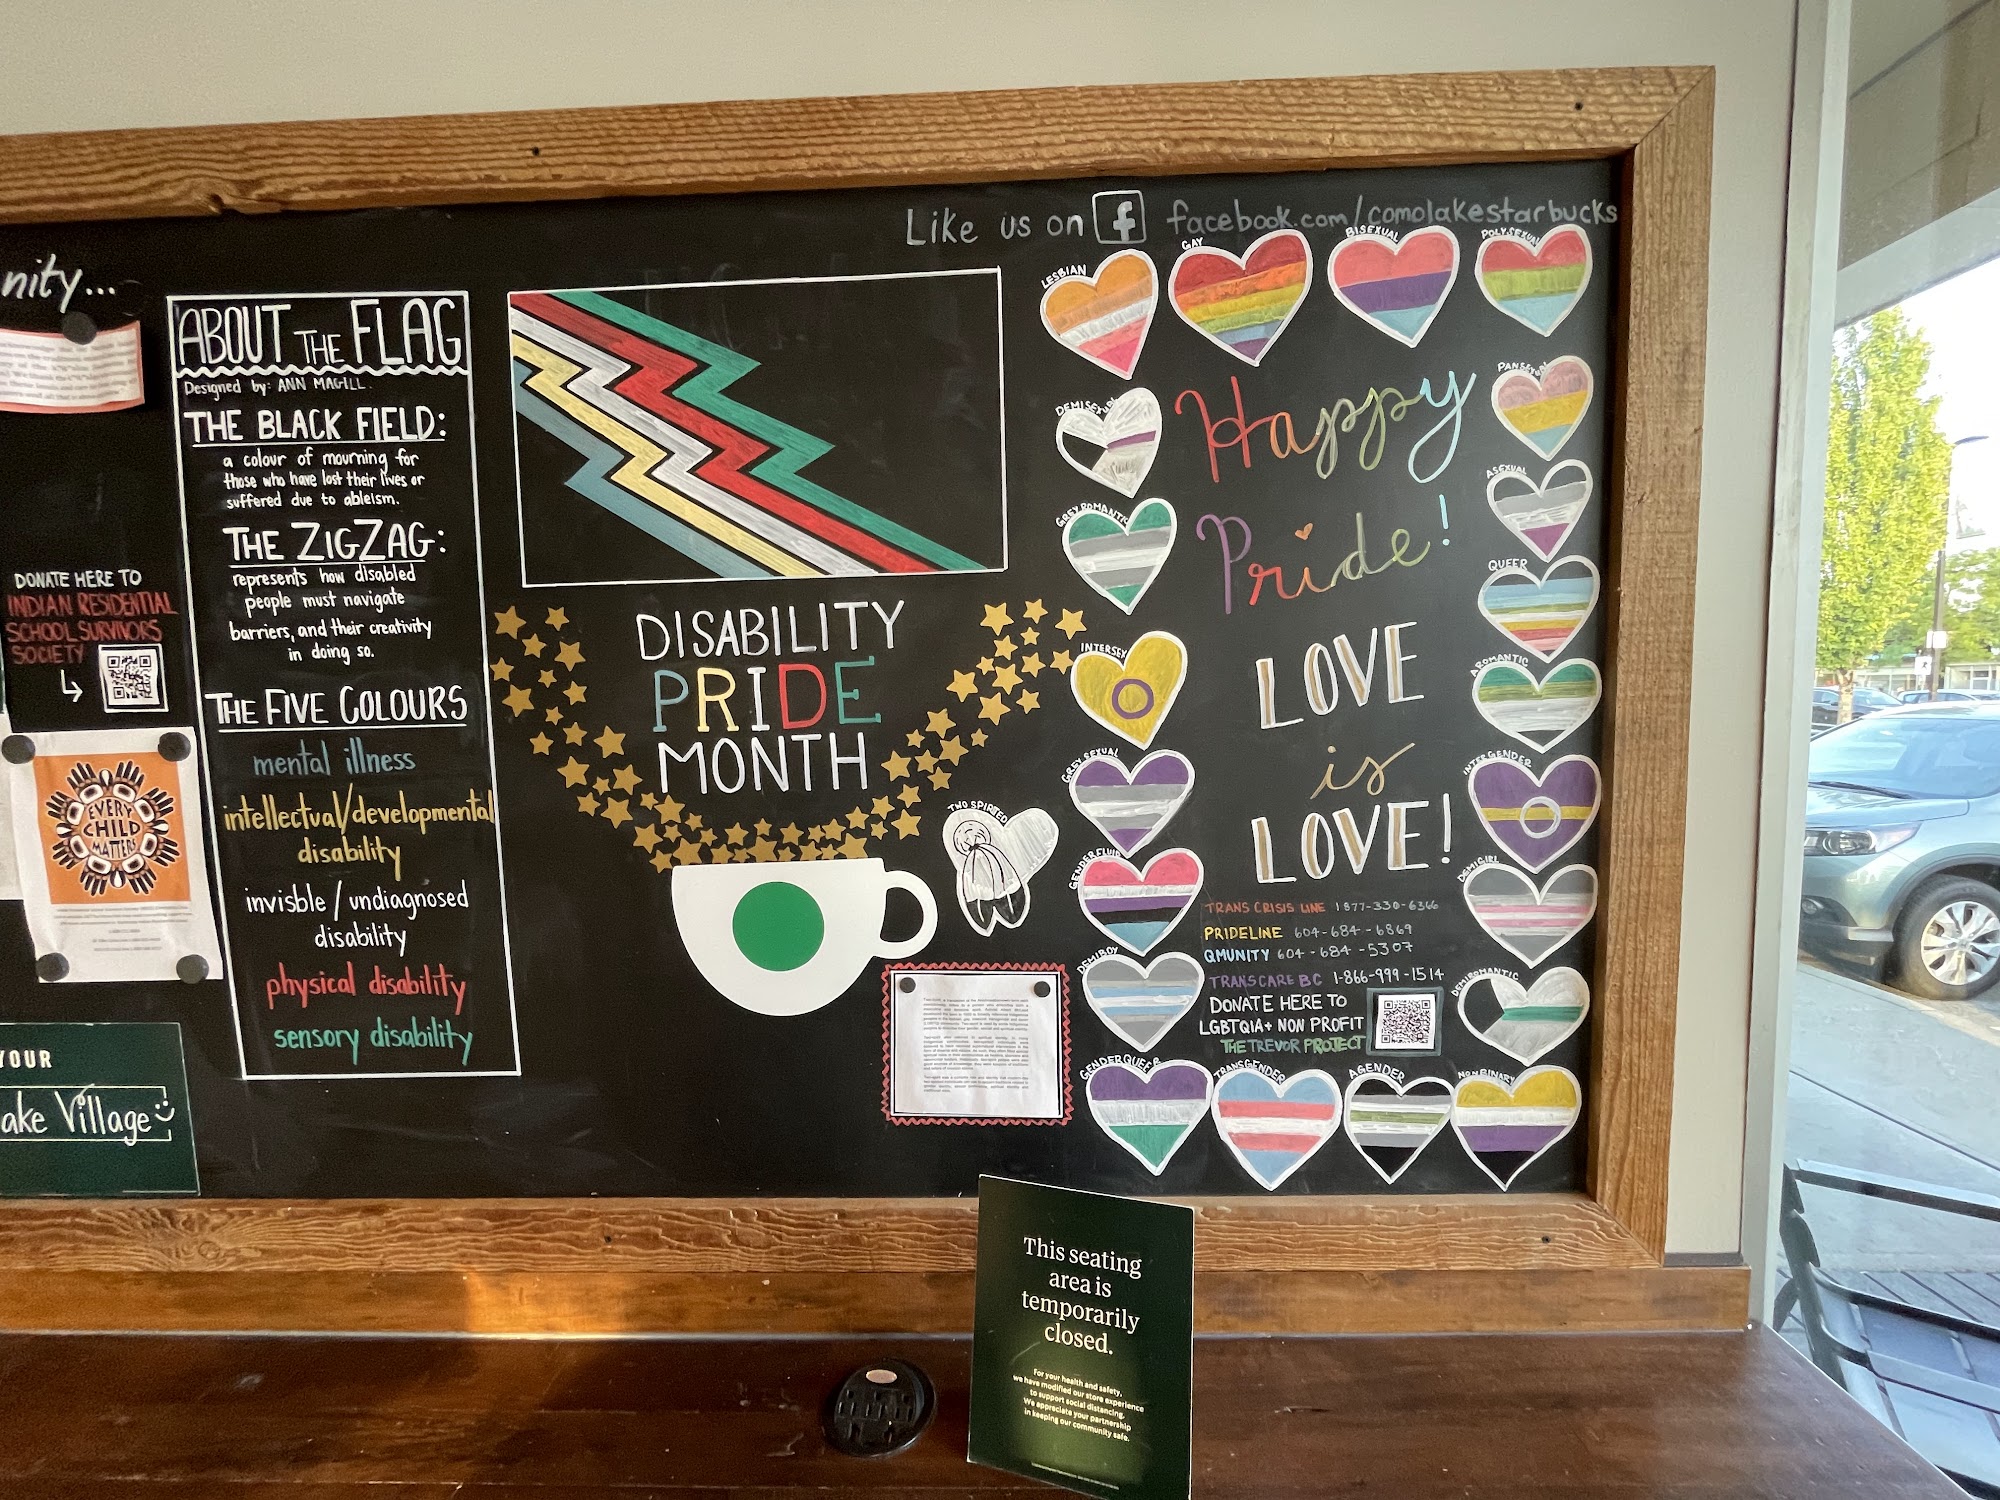 Like us on f facebook.com/comolakestarbucks
nity...
DONATE HERE TO
INDIAN RESIDENTIAL
SCHOOL SURVIVORS
SOCIETY
EVERY
CHILD
MATTERS
YOUR
ake Village
ABOUT THE FLAG
Designed by: ANN MAGILL.
THE BLACK FIELD:
a colour of mourning for
those who have lost their lives or
suffered due to ableism.
THE ZIGZAG:
represents how disabled
people must navigate
barriers, and their creativity
in doing so.
THE FIVE COLOURS
mental illness
intellectual/developmental
disability
invisble / undiagnosed
disability
physical disability
sensory disability
DISABILITY
PRIDE
MONTH
TWO SPIRITED
LESBIAN
GAY
BISEXUAL
POLYSEXUAL
DEMISEXUAL
PANSEXUAL
GREYROMANTIC
ASEXUAL
QUEER
INTERSEX
AROMANTIC
GREYSEXUAL
INTERGENDER
GENDERFLUID
DEMIGIRL
DEMIBOY
DEMIROMANTIC
GENDERQUEER
TRANSGENDER
AGENDER
NONBINARY
Happy
Pride!
LOVE
is
LOVE!
TRANS CRISIS LINE 1877-330-6366
PRIDELINE 604-684-6869
QMUNITY 604-684-5307
TRANS CARE BC 1-866-999-1514
DONATE HERE TO
LGBTQIA+ NON PROFIT
THE TREVOR PROJECT
This seating
area is
temporarily
closed.
For your health and safety,
we have modified our store experience
to support social distancing.
We appreciate your partnership
in keeping our community safe.